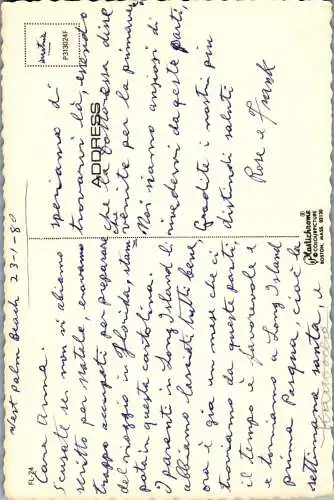 West Palm Beach 23-1-80
Cara Anna.
Scusate se non vi abbiamo
scritto per Natale, eravamo
troppo occupati per preparare
del viaggio in Florida, stam
pata in questa cartolina.
I parenti in Long Island li
abbiamo lasciati tutti bene,
ora è già un mese che ci
troviamo da queste parti,
il tempo è favorevole e
e torniamo a Long Island
prima Pasqua, cioè la
settimana santa, e
speriamo di
trovarvi là, essendo
che la dottoressa dice
che
venite per la primavera
Noi siamo anziosi di
rivedervi da queste parti,
Gradite i nostri più
distindi saluti
Rose e Frank
FL-24
ADDRESS
P313024F
Plastichrome ®
® COLOURPICTURE
BOSTON, MASS. 02130